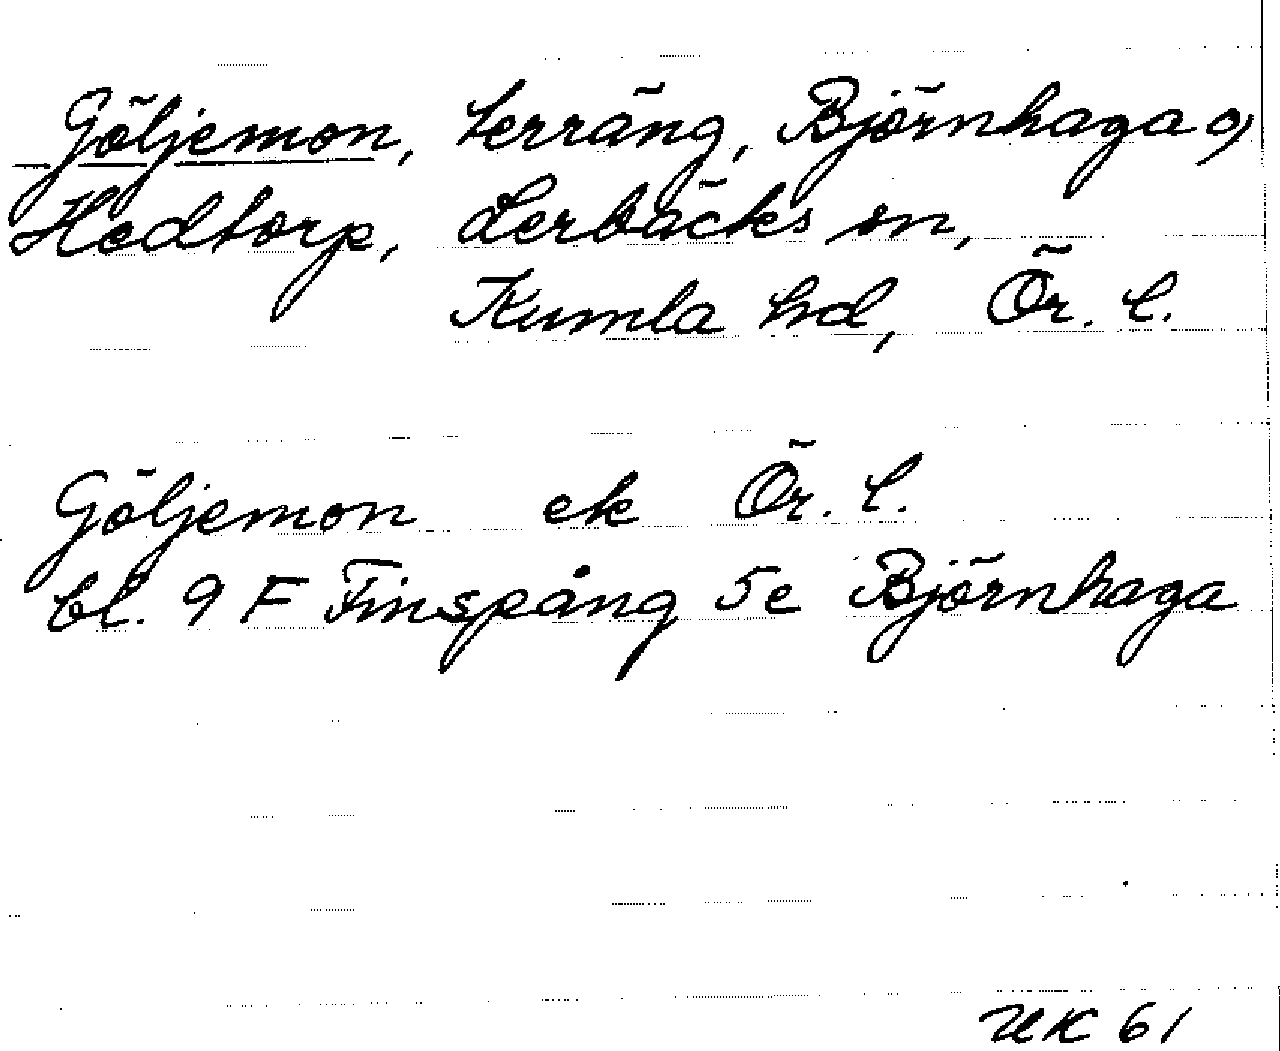 Göljemon, terräng, Björnhaga o,
Hedtorp, Lerbäcks sn,
Kumla hd, Ör. l.
Göljemon ek Ör. l.
bl. 9 F Finspång 5e Björnhaga
UK 61